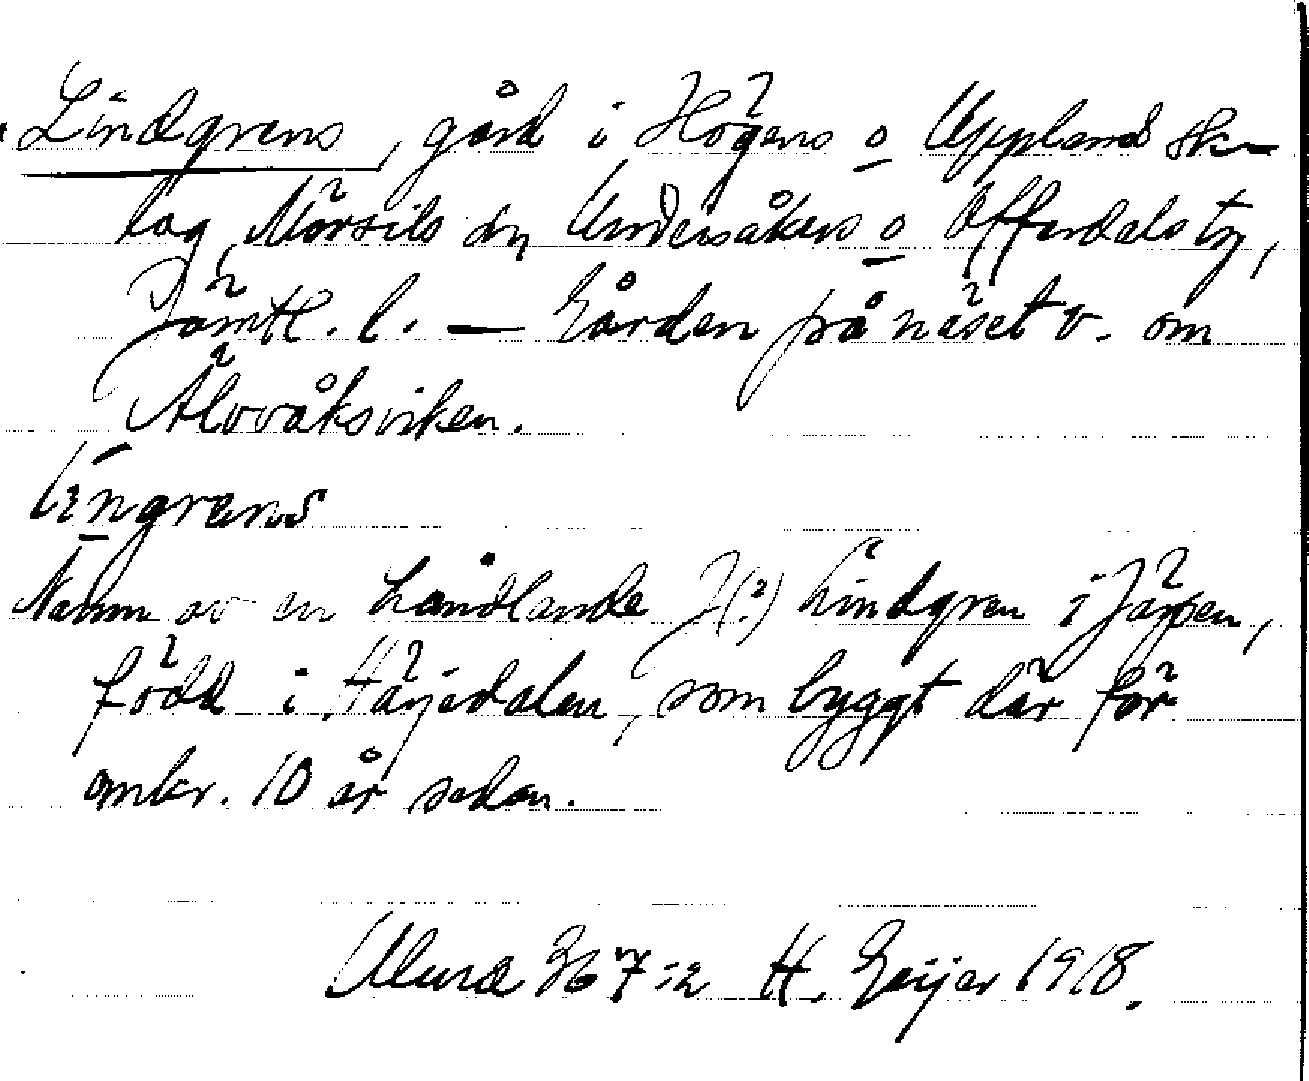 Lindgrens, gård i Högens o Uppland sk-
lag, Mörsils sn, Undersåkers o Offerdals tg,
Jämtl. l. — Gården på näset v. om
Älvvåksviken.
lingrens
Namn av en handlande J(?) Lindgren i Järpen,
född i Härjedalen, som byggt där för
omkr. 10 år sedan.
H. Geijer 1918.